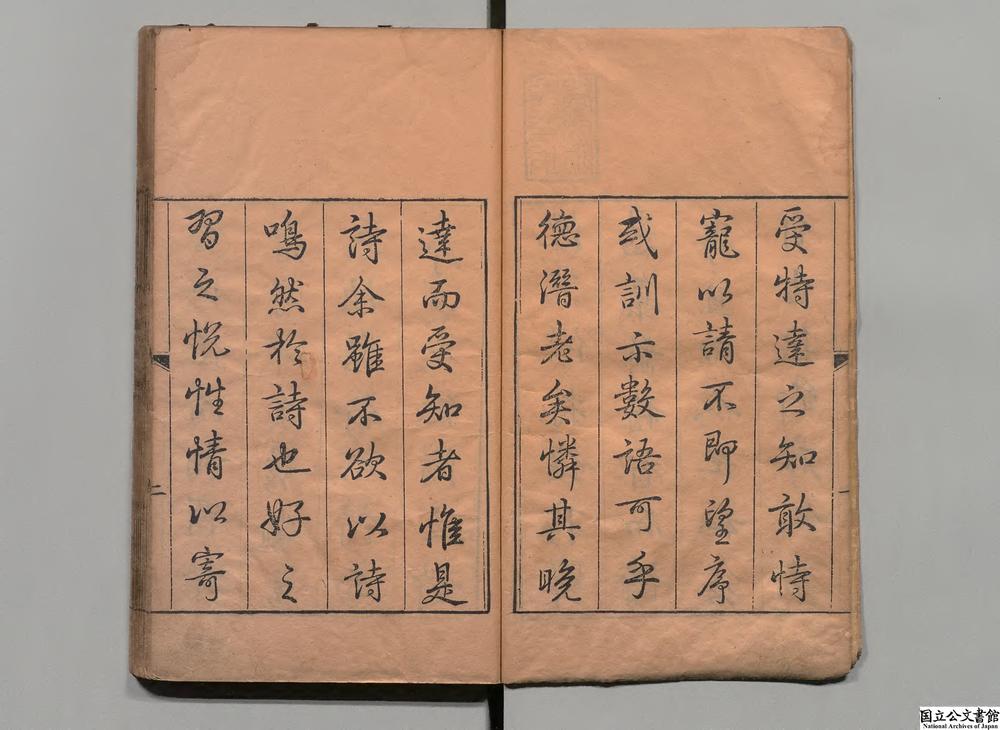 受特達之知敢恃
寵以請不即望序
或訓示數語可乎
德潛老矣憐其晚
達而受知者惟是
詩余雖不欲以詩
鳴然於詩也好之
習之悅性情以寄
二
一
国立公文書館
National Archives of Japan